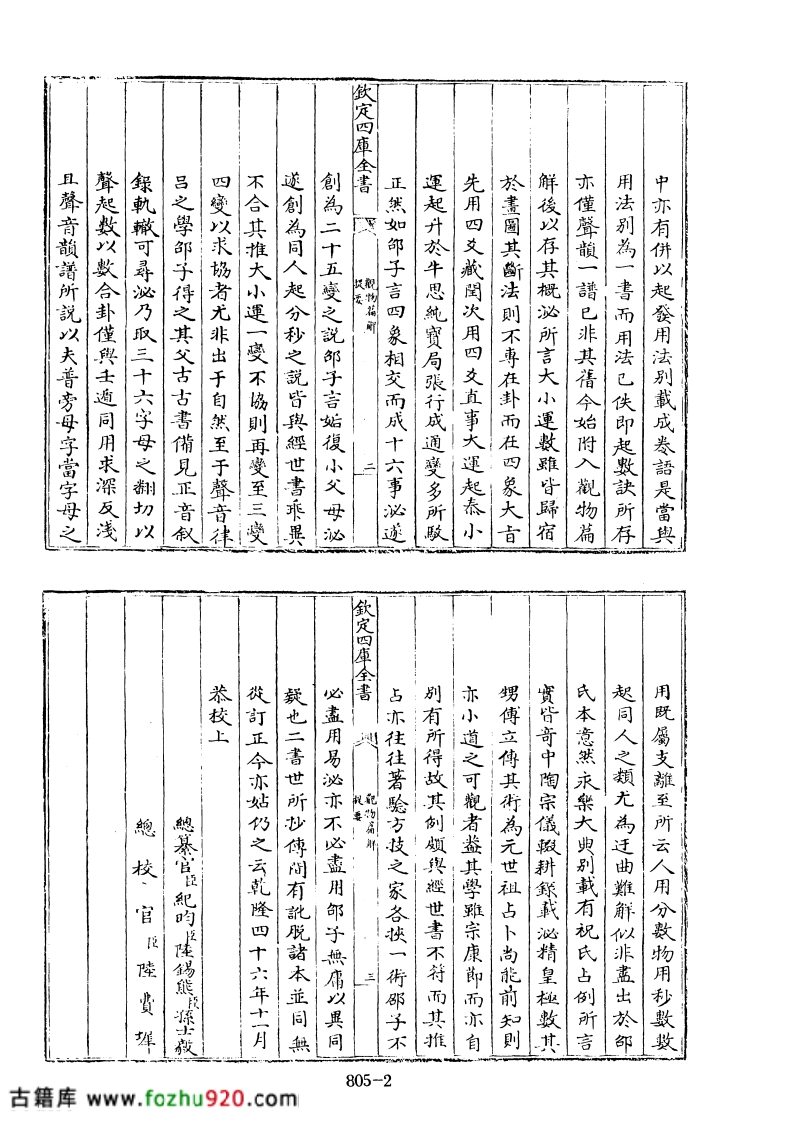 中亦有併以起發用法别載成卷語是當與
用法别為一書而用法已佚即起數訣所存
亦僅聲韻一譜已非其舊今始附入觀物篇
解後以存其概泌所言大小運數雖皆歸宿
於畫圖其斷法則不專在卦而在四象大㫖
先用四爻藏閏次用四爻直事大運起泰小
運起升於牛思純寶局張行成通變多所駁
正然如邵子言四象相交而成十六事泌遂
欽定四庫全書
觀物篇解
提要
二
創為二十五變之説邵子言姤復小父母泌
遂創為同人起分秒之説皆與經世書乖異
不合其推大小運一變不協則再變至三變
四變以求協者尤非出于自然至于聲音律
吕之學邵子得之其父古古書備見正音叙
錄軌轍可尋泌乃取三十六字母之翻切以
聲起數以數合卦僅與壬遁同用求深反淺
且聲音韻譜所説以夫普旁母字當字母之
用既屬支離至所云人用分數物用秒數數
起同人之類尤為迂曲難解似非盡出於邵
氏本意然永樂大典别載有祝氏占例所言
實皆竒中陶宗儀輟耕錄載泌精皇極數其
甥傅立傳其術為元世祖占卜尚能前知則
亦小道之可觀者葢其學雖宗康節而亦自
别有所得故其例頗與經世書不符而其推
占亦往往著驗方技之家各挾一術邵子不
欽定四庫全書
觀物篇解
提要
三
必盡用易泌亦不必盡用邵子無庸以異同
疑也二書世所抄傳間有訛脱諸本並同無
從訂正今亦姑仍之云乾隆四十六年十一月
恭校上
總纂官臣紀昀臣陸錫熊臣孫士毅
總校官臣陸費墀
805-2
古籍库 www.fozhu920.com